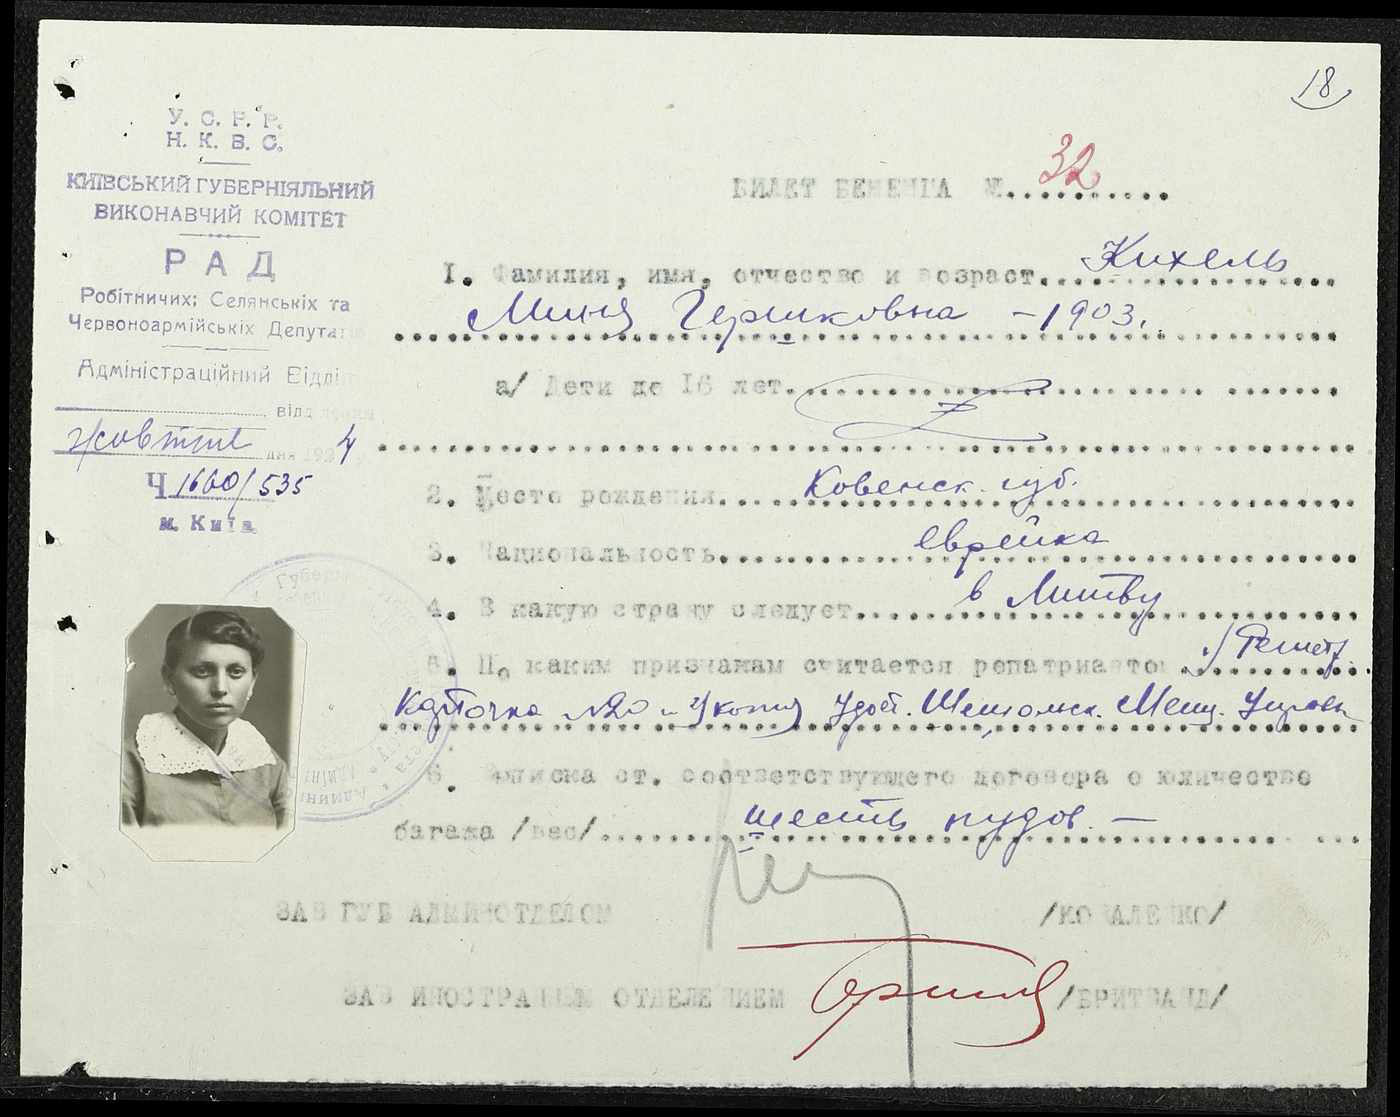 18
У. С. Р. Р.
Н. К. В. С.
КИЇВСЬКИЙ ГУБЕРНІЯЛЬНИЙ
ВИКОНАВЧИЙ КОМІТЕТ
РАД
Робітничих; Селянських та
Червоноармійських Депутатів
Адміністраційний Відділ
відділення
Жовтня дня 1924
Ч 1660/535
м. Київ
БИЛЕТ БЕЖЕНЦА №........... 32
1. Фамилия, имя, отчество и возраст. Кихель
Миня Гершковна - 1903.
а/ Дети до 16 лет.
2. Место рождения. Ковенск. губ.
3. Национальность. еврейка
4. В какую страну следует. в Литву
5. По каким признакам считается репатриантом
Карточка №20 и 2/ копия Удост. Мещ. Управы
6. Выписка ст. соответствующего договора о количестве
багажа /вес/. шесть пудов. —
ЗАВ ГУБ АДМИНОТДЕЛОМ /КОВАЛЕНКО/
ЗАВ ИНОСТРАННЫМ ОТДЕЛЕНИЕМ /БРИТВАНД/